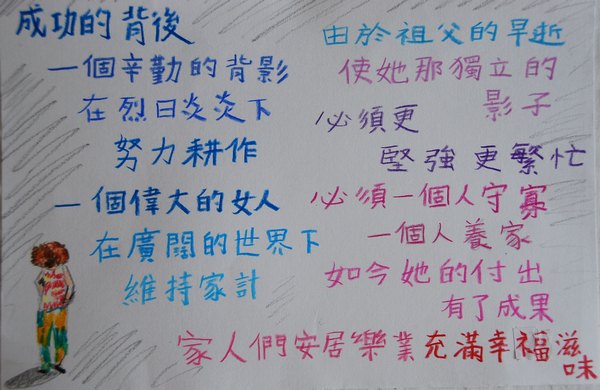 成功的背後
一個辛勤的背影
在烈日炎炎下
努力耕作
一個偉大的女人
在廣闊的世界下
維持家計
由於祖父的早逝
使她那獨立的
影子
必須更
堅強更繁忙
必須一個人守寡
一個人養家
如今她的付出
有了成果
家人們安居樂業充滿幸福滋
味